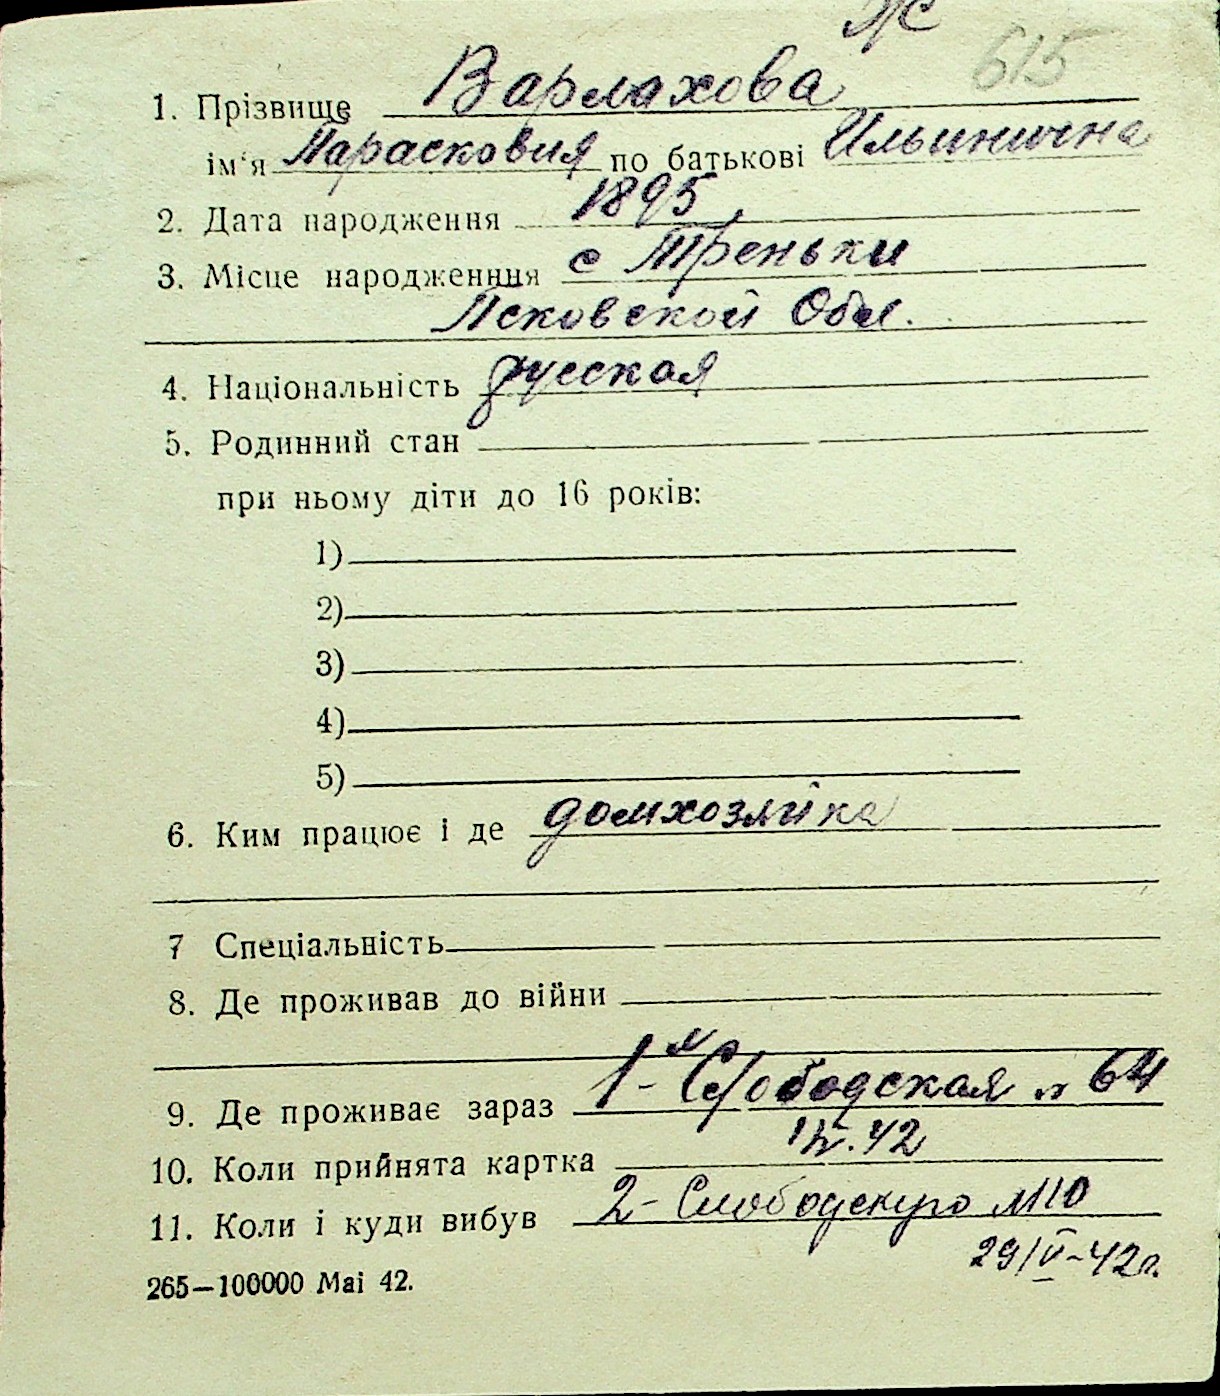 Ж
615
1. Прізвище Варлахова
ім'я Парасковия по батькові Ильинична
2. Дата народження 1895
3. Місце народженння с Треньки
Псковской Обл.
4. Національність русская
5. Родинний стан
при ньому діти до 16 років:
1)
2)
3)
4)
5)
6. Ким працює і де домхозяйка
7 Спеціальність
8. Де проживав до війни
9. Де проживає зараз 1-я Слободская № 64
10. Коли прийнята картка 42
11. Коли і куди вибув 2-Слободскую №10
29/V-42г.
265—100000 Mai 42.